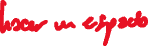 hacer un espacio